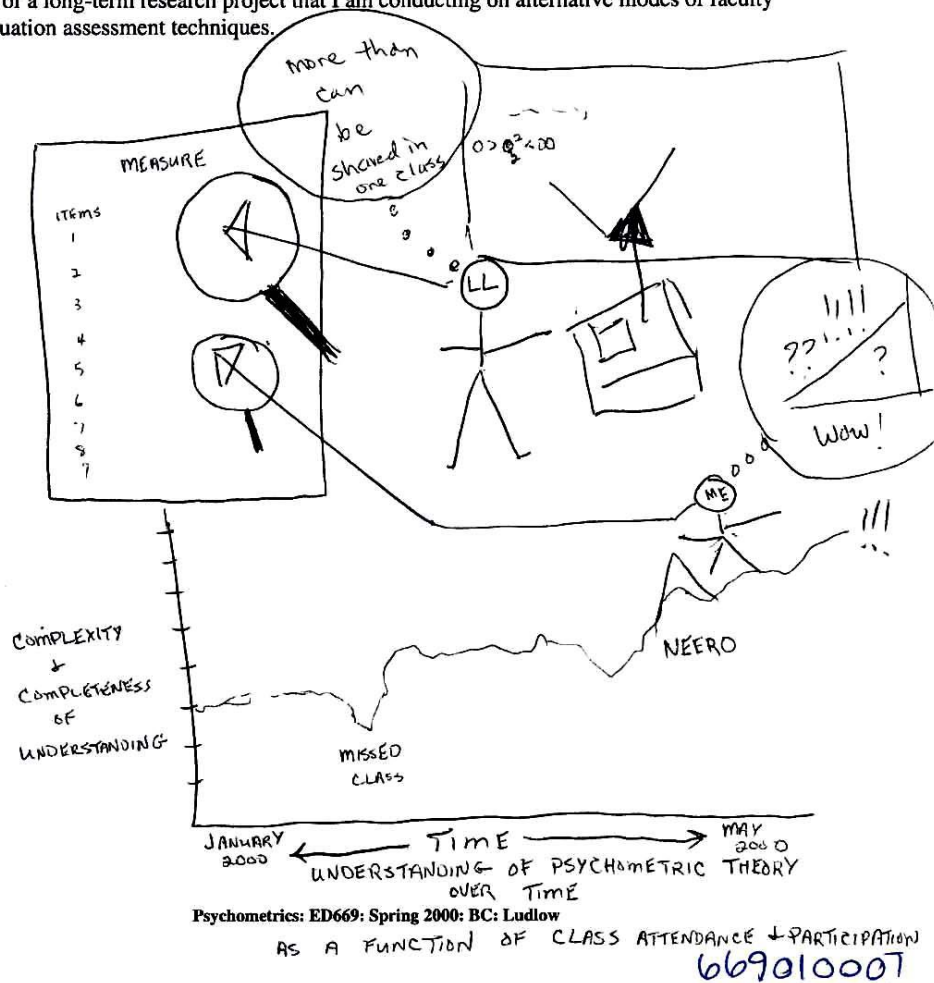 of a long-term research project that I am conducting on alternative modes of faculty
uation assessment techniques.
more than
can
be
shared in
one class
MEASURE
ITEMS
1
2
3
4
5
6
7
8
9
LL
!!!!
??!...
?
WOW!
ME
!!!
NEERO
COMPLEXITY
&
COMPLETENESS
OF
UNDERSTANDING
MISSED
CLASS
JANUARY
2000
TIME
MAY
2000
UNDERSTANDING OF PSYCHOMETRIC THEORY
OVER TIME
Psychometrics: ED669: Spring 2000: BC: Ludlow
AS A FUNCTION OF CLASS ATTENDANCE & PARTICIPATION
669010007